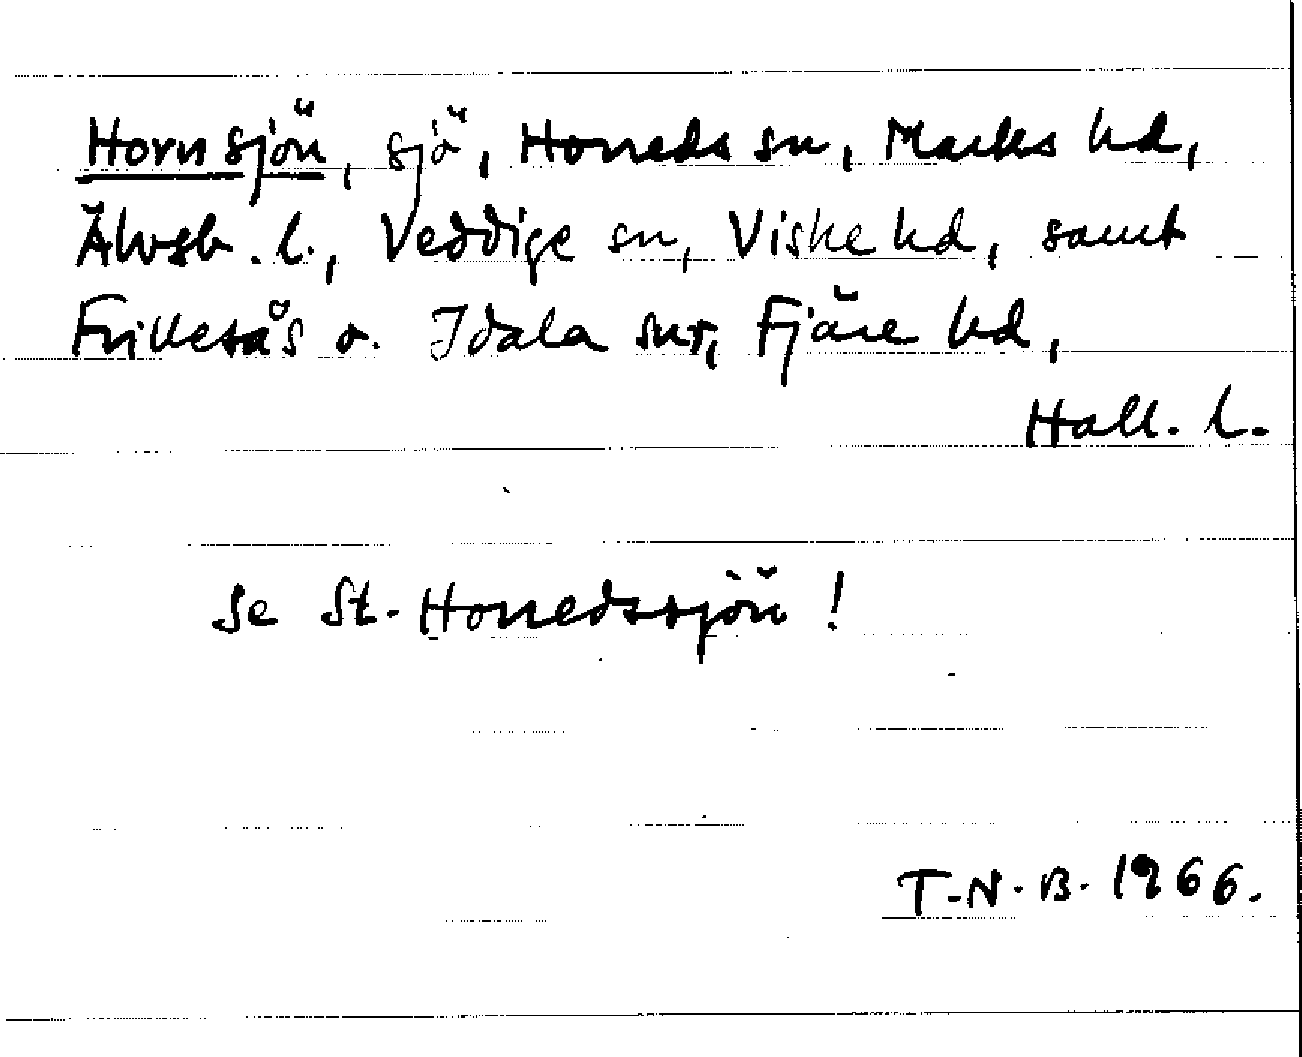 Hornsjön, sjö, Horreds sn, Marks hd,
Älvsb. l., Veddige sn, Viske hd, samt
Frillesås o. Idala snr, Fjäre hd,
Hall. l.
Se St. Horredssjön!
T.N.B. 1966.